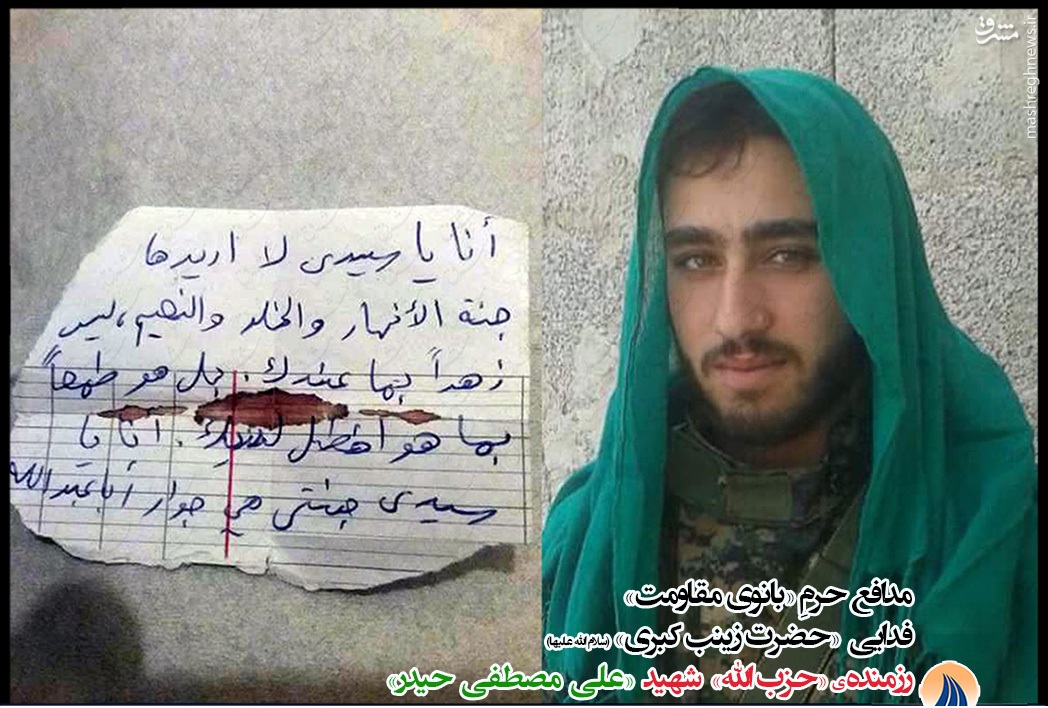 أنا يا سيدي لا اريدها
جنة الأنهار والخلد والنعيم، ليس
زهداً بها عندك. بل هو طمعاً
بما هو افضل لديك. أنا يا
سيدي جنتي هي جوار أبا عبد الله
مشرق
mashreghnews.ir
مدافع حرمِ «بانوی مقاومت»
فدایی «حضرت زینب کبری» (سلام الله علیها)
رزمنده‌ی «حزب الله» شهید «علی مصطفی حیدر»